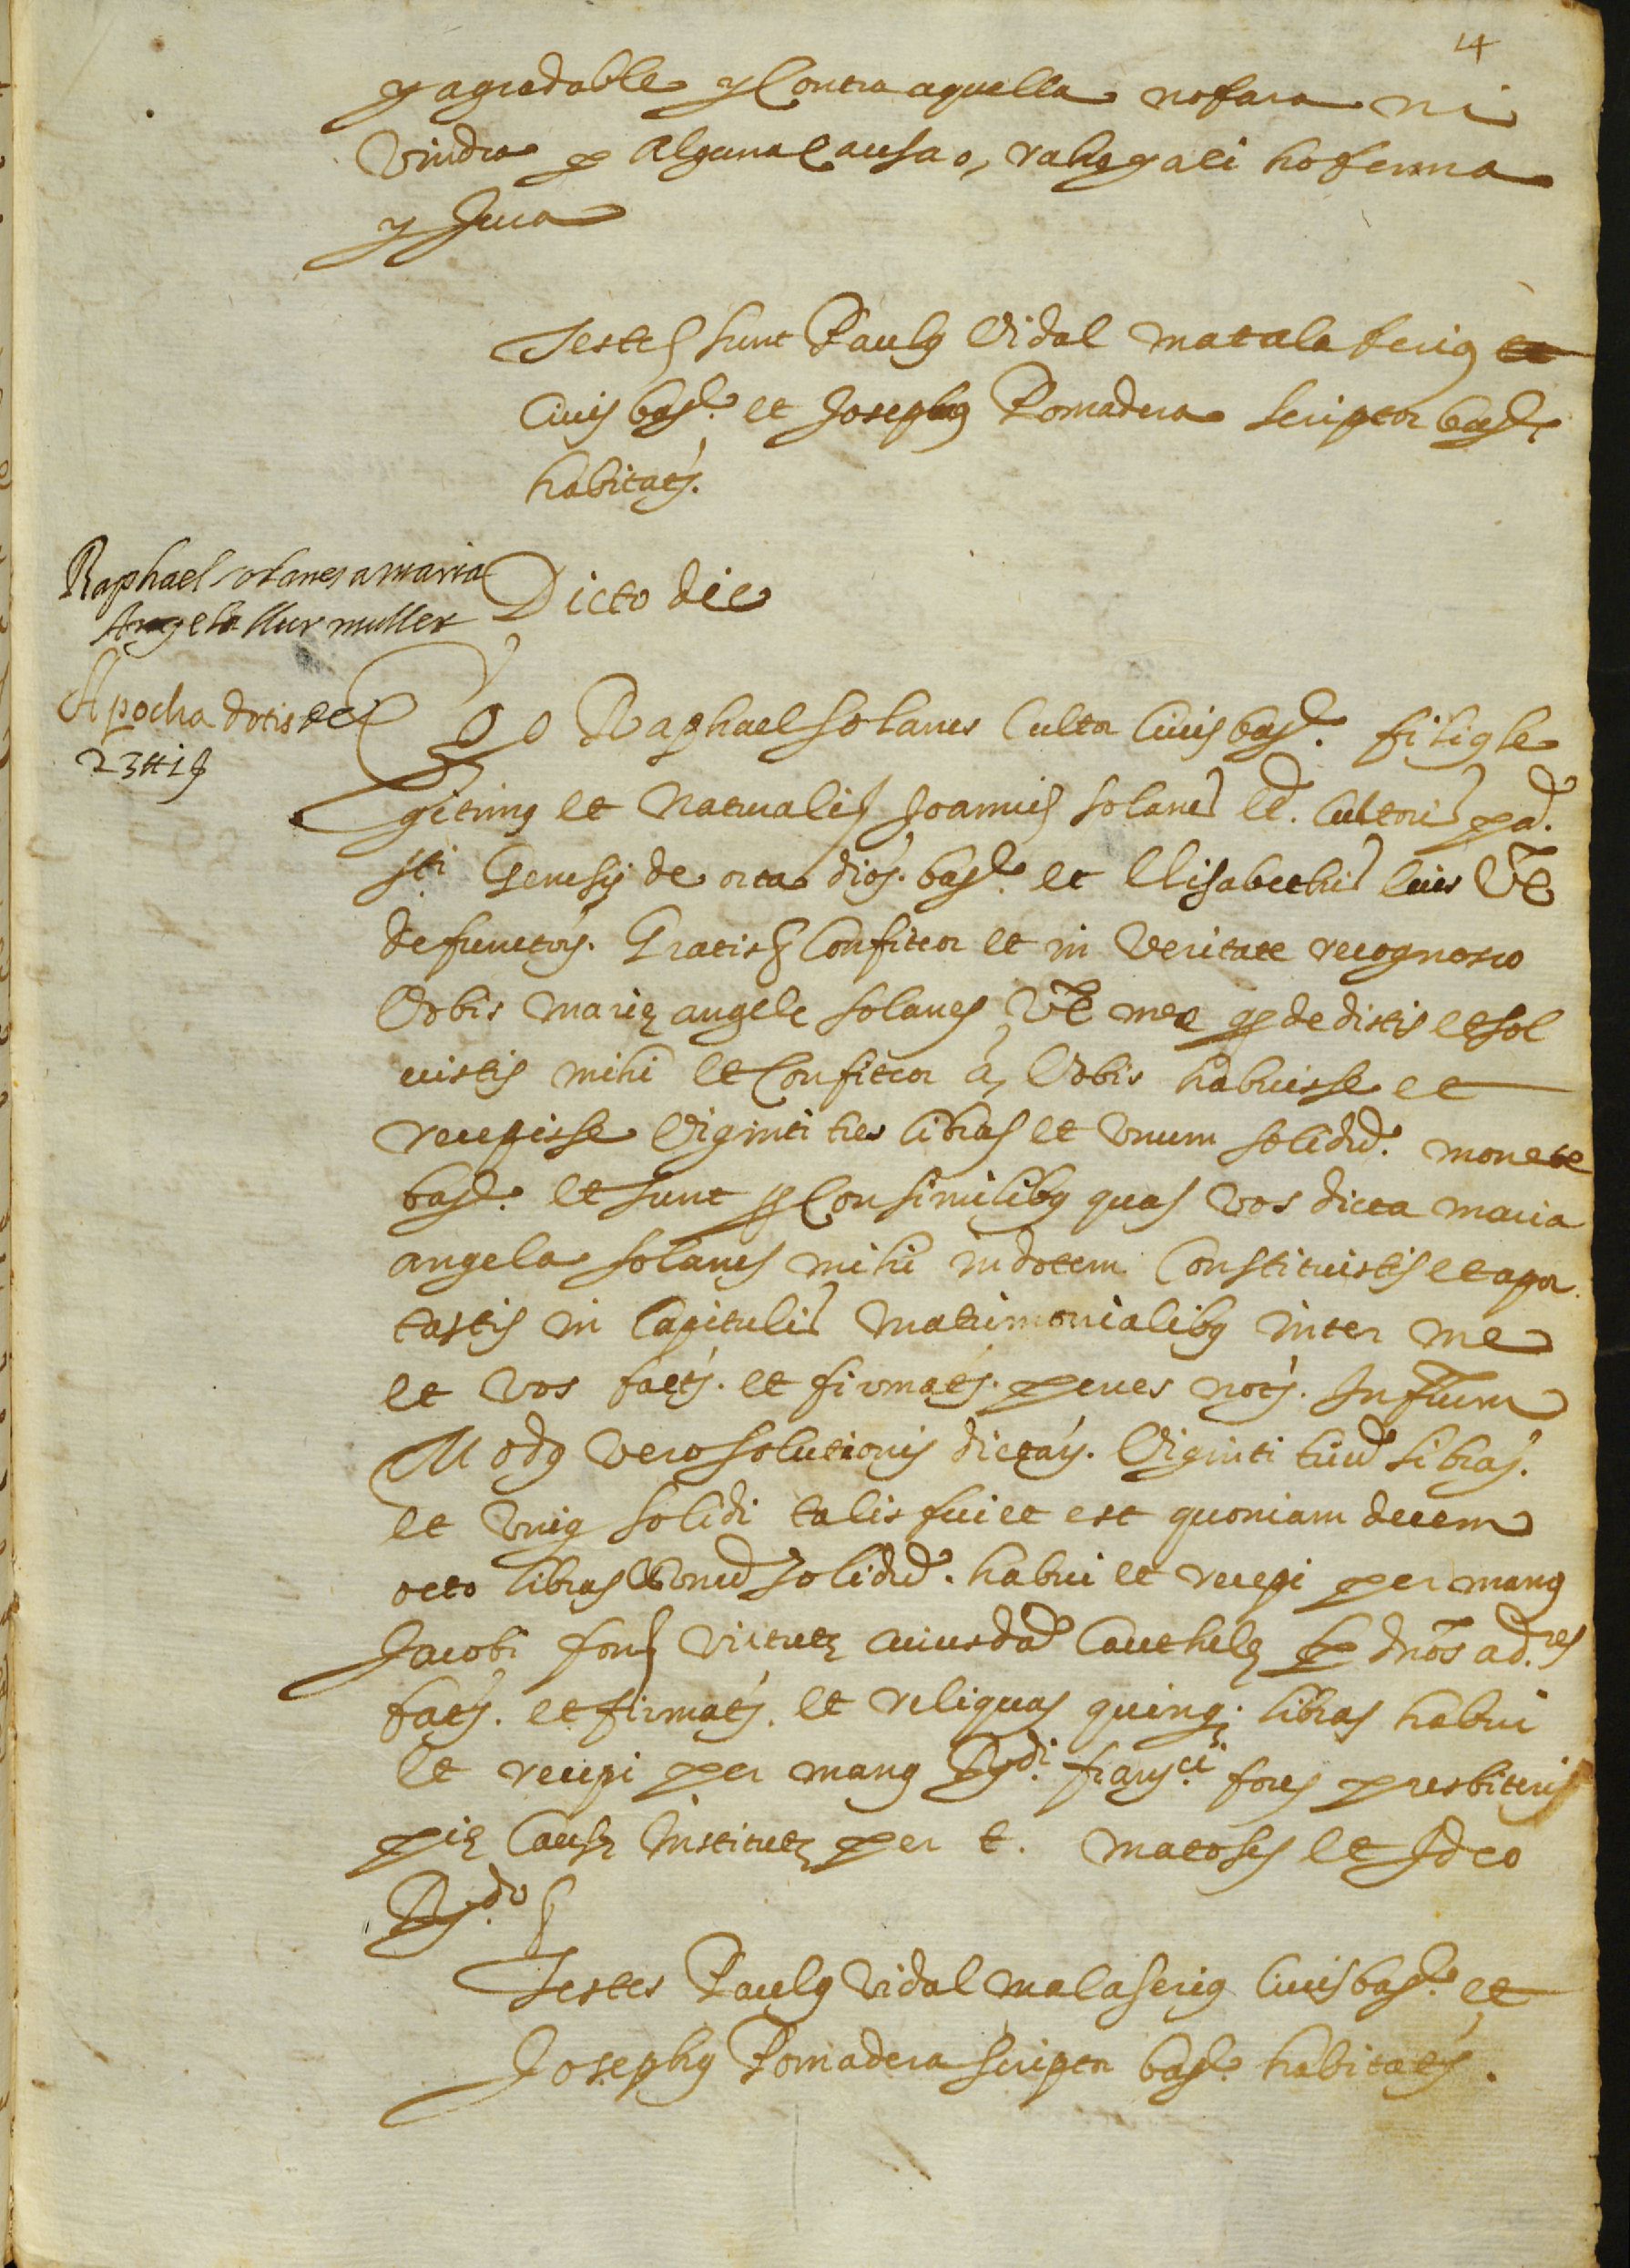 14
y agradable y Contra aquella no fara ni
Vindra p Alguna Causa o, raho y axi ho ferma
y Jura
Testes sunt Paulus Vidal matalaferius
Civis bar. et Josephus Romadera scriptor bar.
habitats.
Raphael solanes a maria
Angela llur muller
Apocha dotis de
23 ti j
Dicto die
Ego Raphael solanes Cultor Civis bar. filius le
gitimus et Naturalis Joannis solanes q. Cultoris pa.
sti. Genesii de orta dios. bar. et Elisabethis eius Ux
defunctors. Gratis & Confiteor et in Veritate recognosco
Vobis mariæ angele solanes Ux mee qp dedistis et sol
vistis mihi et Confiteor a, Vobis habuisse et
recepisse Viginti tres libras et Unum solidu. monete
bar. et sunt p Consimilibus quas vos dicta maria
angela solanes mihi in dotem Constituistis et apor
tastis in Capitulis matrimonialibus inter me
et vos facts. et firmats. penes nots. Infrum
Modus vero solutionis dictars. Viginti trium librars.
et Unius solidi talis fuit et est quoniam decem
octo libras Unu solidu. habui et recepi per manus
Jacobi fons virtute cuiusda Cauthelæ p dnos ad.res
facts. et firmats. et reliquas quinq. libras habui
et recepi per manus Rdi. fransci. fores presbiteris
piæ Causæ Institutæ per t. matoses et Ideo
R.do &
Testes Paulus Vidal malaserius Civis bar. et
Josephus Romadera scriptor bar. habitats.